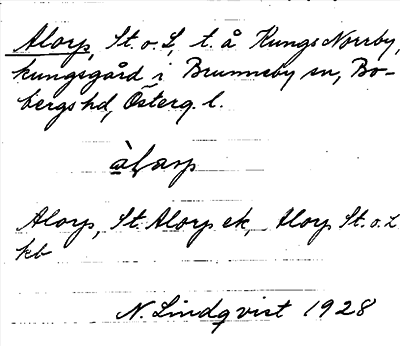 Alorp, St. o. L, t. å Kungs Norrby,
kungsgård i Brunneby sn, Bo-
bergs hd, Österg. l.
Alorp, St. Alorp ek, Alorp St. o. L
kb
N. Lindqvist 1928